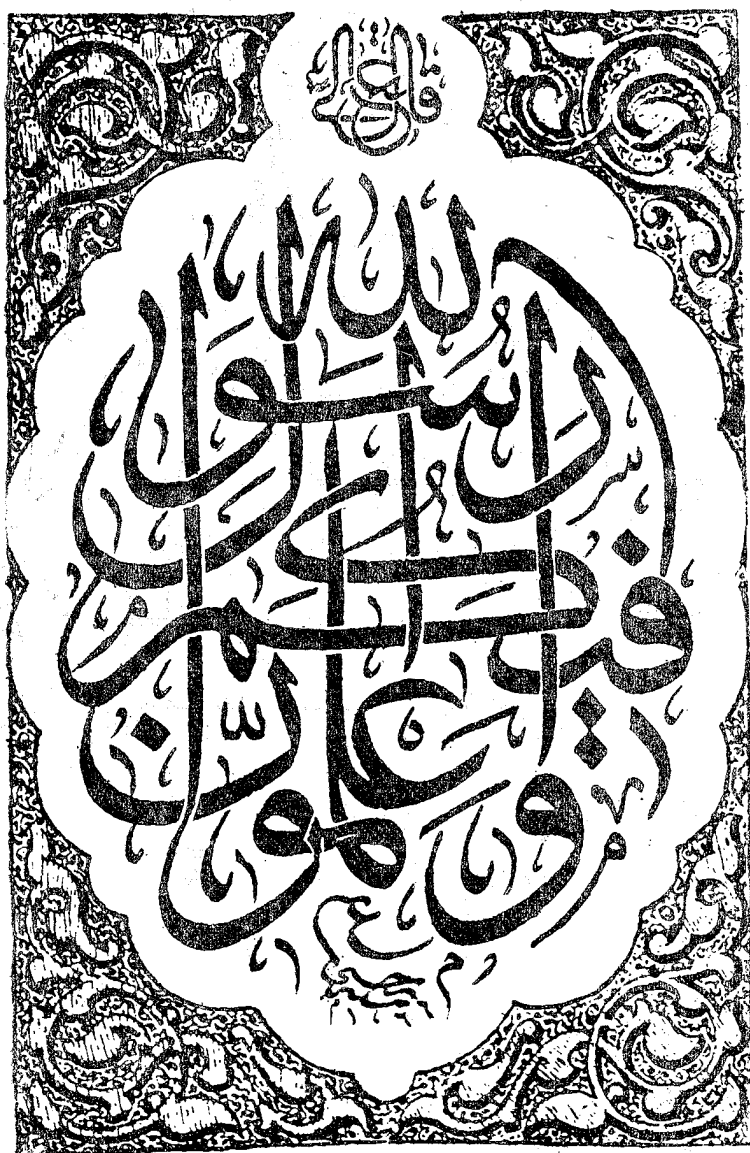 قال الله تعالى
وَاعْلَمُوا أَنَّ فِيكُمْ رَسُولَ اللَّهِ